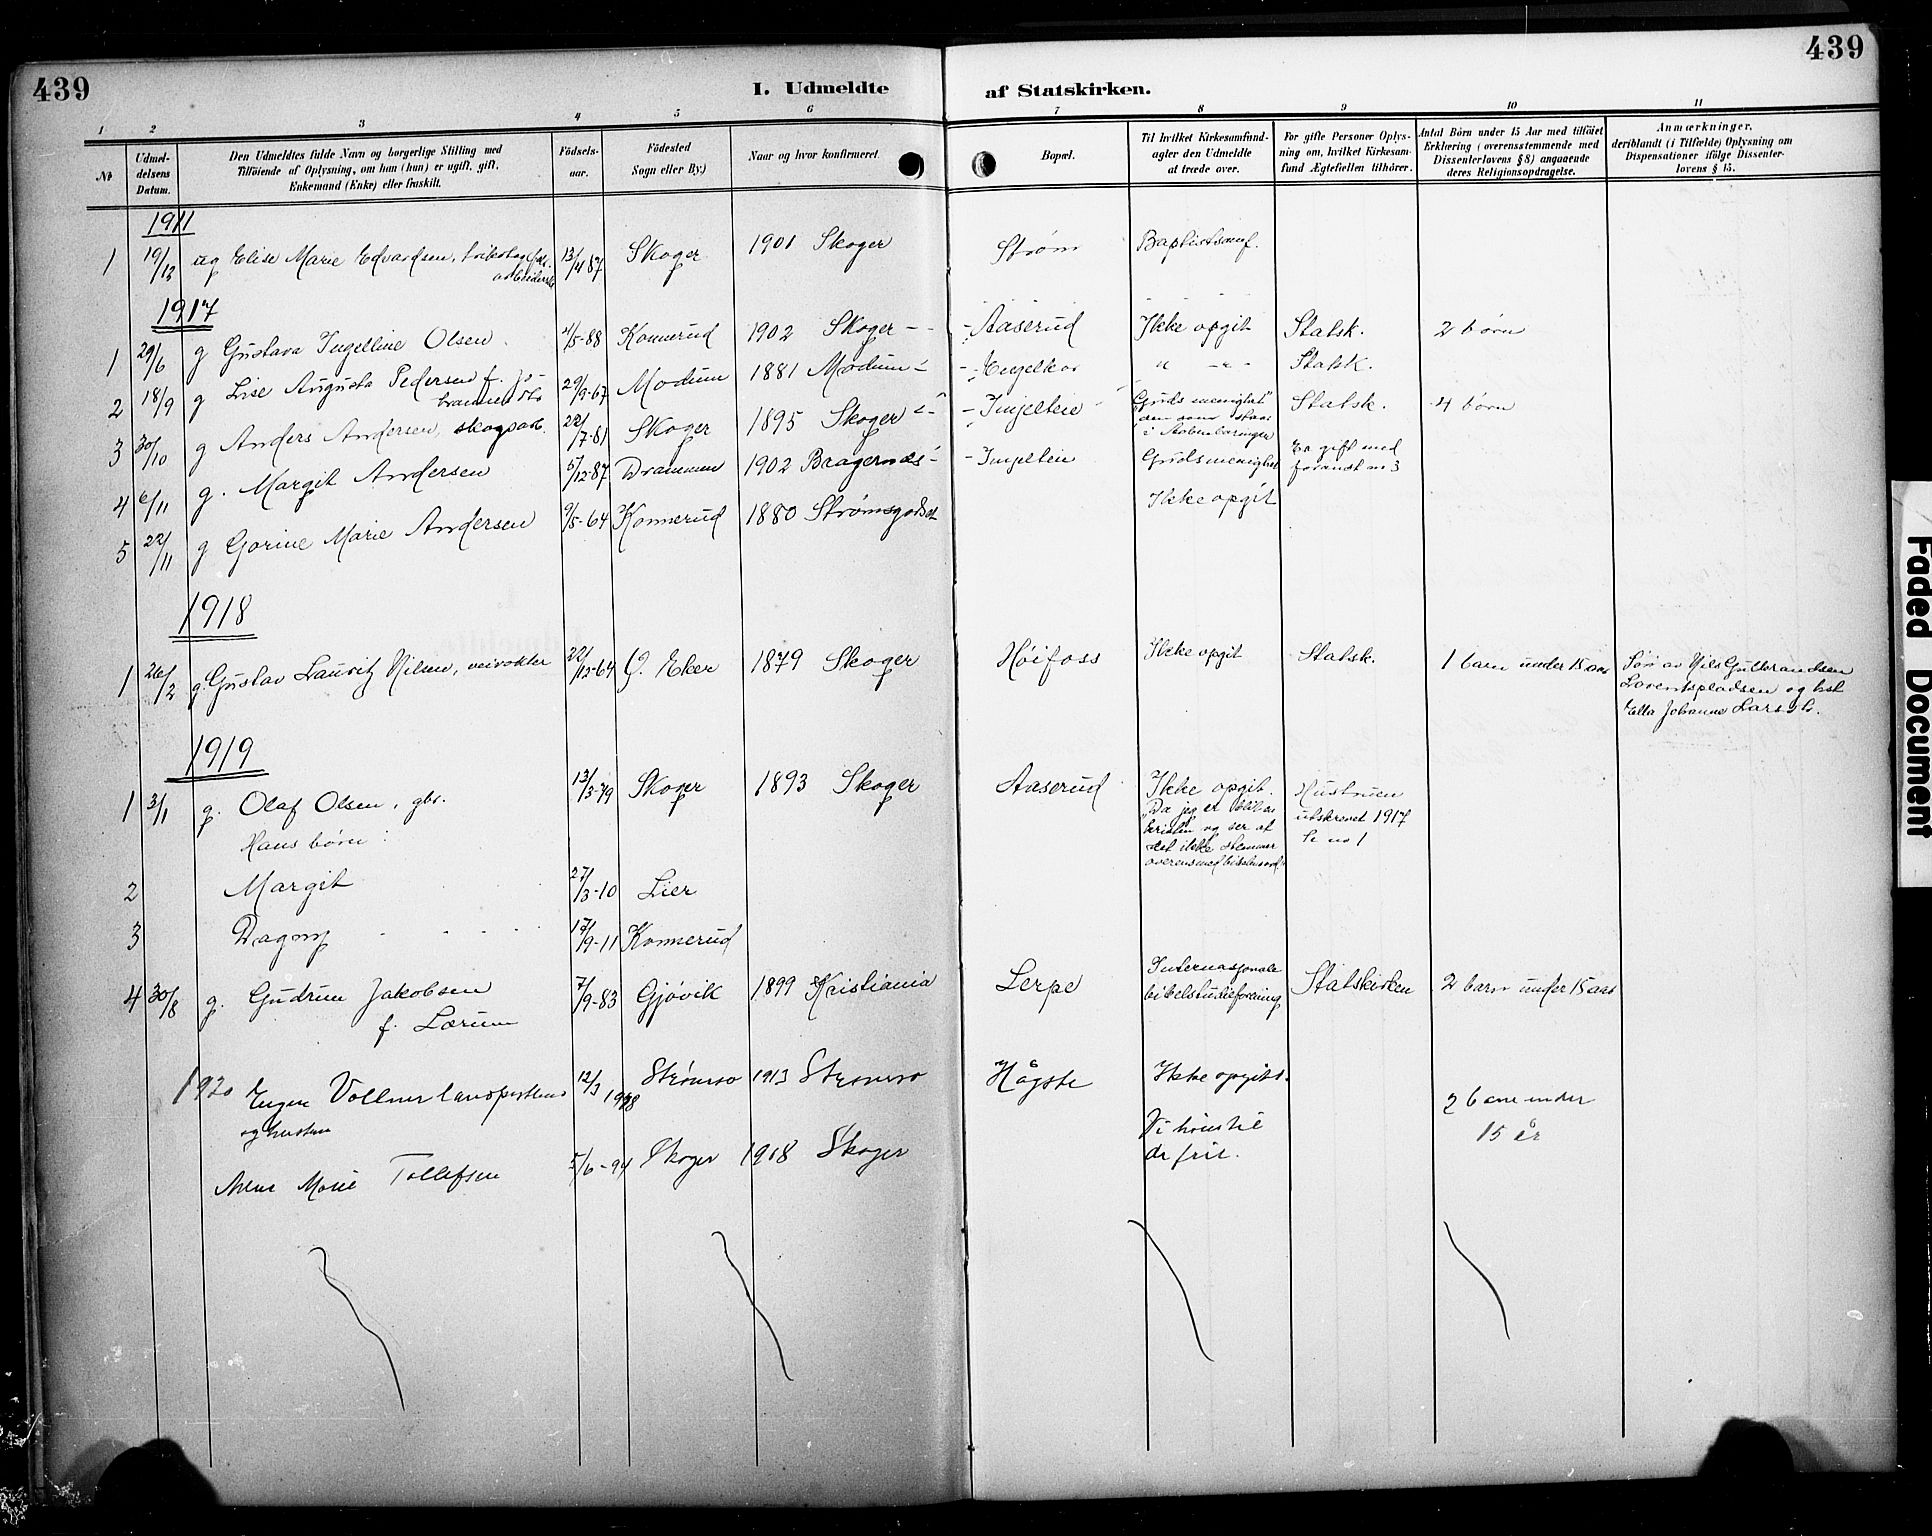 439
439
I. Udmeldte af Statskirken.
1 2 3 4 5 6 7 8 9 10 11
No
Udmel-
delsens
Datum.
Den Udmeldtes fulde Navn og borgerlige Stilling med
Tilföiende af Oplysning, om han (hun) er ugift, gift,
Enkemand (Enke) eller fraskilt.
Födsels-
aar.
Födested
Sogn eller By.)
Naar og hvor konfirmeret.
Bopæl.
Til hvilket Kirkesamfund-
agter den Udmeldte
at træde over.
For gifte Personer Oplys-
ning om, hvilket Kirkesam-
fund Ægtefællen tilhörer.
Antal Börn under 15 Aar med tilföiet
Erklæring (overensstemmende med
Dissenterlovens § 8) angaaende
deres Religionsopdragelse.
Anmærkninger,
deriblandt (i Tilfælde) Oplysning om
Dispensationer ifölge Dissenter-
lovens § 15.
1911
1 19/12 ug Elise Marie Edvardsen, 13/4 87 Skoger 1901 Skoger Strøm Baptistsamf.
1917
1 29/6 g Gustava Ingelline Olsen 4/5-88 Konnerud 1902 Skoger - - Aaserud Ikke opgit Statsk. 2 børn
2 18/9 g Lise Augusta Pedersen f. 29/9-67 Modum 1881 Modum - " - " - Statsk.
3 30/10 g Anders Andersen, skogsarb. 22/7-81 Skoger 1895 Skoger - Ingelteie "Guds menighet" Statsk. 4 børn
den som staar
i Aabenbaringen
4 6/11 g. Margit Andersen 5/12-87 Drammen 1902 Bragernæs - Ingelteie Guds menighet Er gift med
foranst. nr 3
5 22/11 g Gorine Marie Andersen 9/5-64 Konnerud 1880 Strømsgodset Ikke opgit
1918
1 26/2 g. Gustav Lauritz Nilsen, veivokter 22/12-64 Ø. Eker 1879 Skoger Høifoss Ikke opgit Statsk. 1 barn under 15 aar Søn av Nils Gulbrandsen
Lorentspladsen og hst
Ella Johanne Larsd.
1919
1 3/1 g. Olaf Olsen, gbr. 13/3-79 Skoger 1893 Skoger Aaserud Ikke opgit. Hustruen
"Da jeg er utskrevet 1917
kristen og ser at nr 1
det ikke stemmer
overens med
Hans børn:
2 Margit 27/3-10 Lier
3 Dagny 17/9-11 Konnerud
4 30/8 g. Gudrun Jakobsen 7/9-83 Gjøvik 1899 Kristiania Lerpe Internasjonale Statskirken 2 barn under 15 aar
f. Lærum bibelstudieforening
1920 Eugen Vollmer 12/3 1898 Strømsø 1913 Strømsø Hågste Ikke opgitt. 2 barn under
og hustru 15 år
Vi
de frie.
Marie Tollefsen 5/6-94 Skoger 1918 Skoger
Faded Document